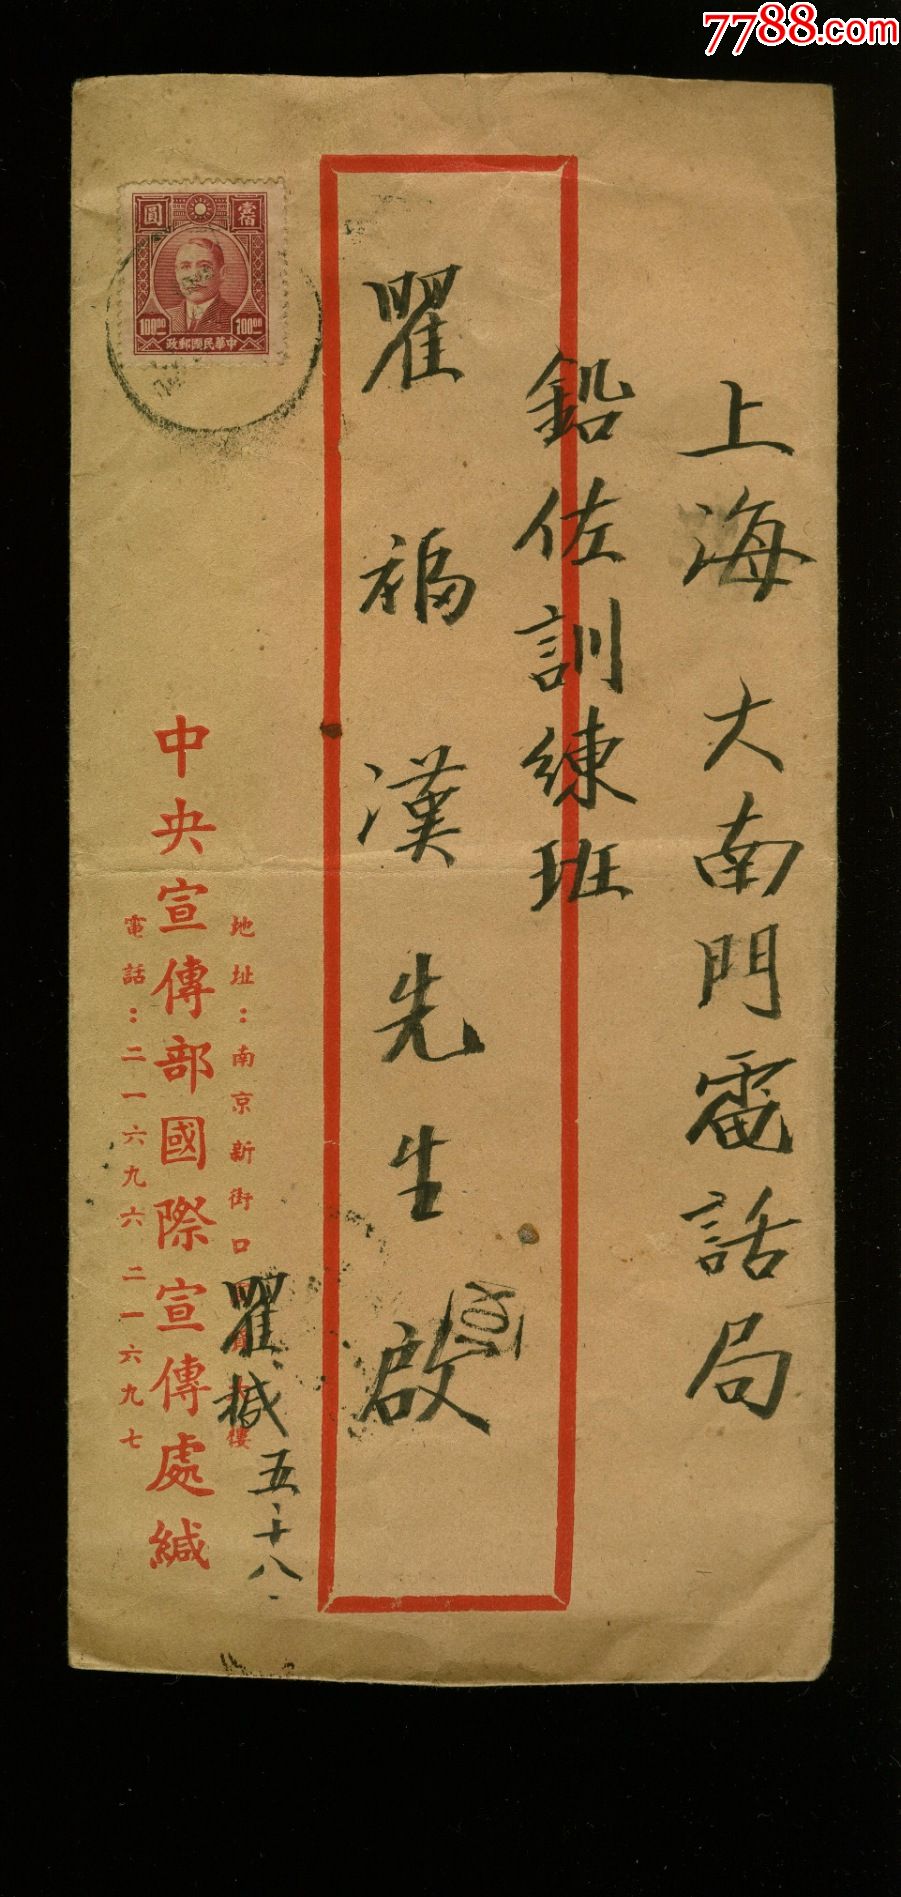 7788.com
上海大南門電話局
鉛佐訓練班
瞿福漢先生啟
瞿緘五·十八·
地址：南京新街口
樓
中央宣傳部國際宣傳處緘
電話：二一六九六 二一六九七
壹佰
圓
100.00
100.00
中華民國郵政